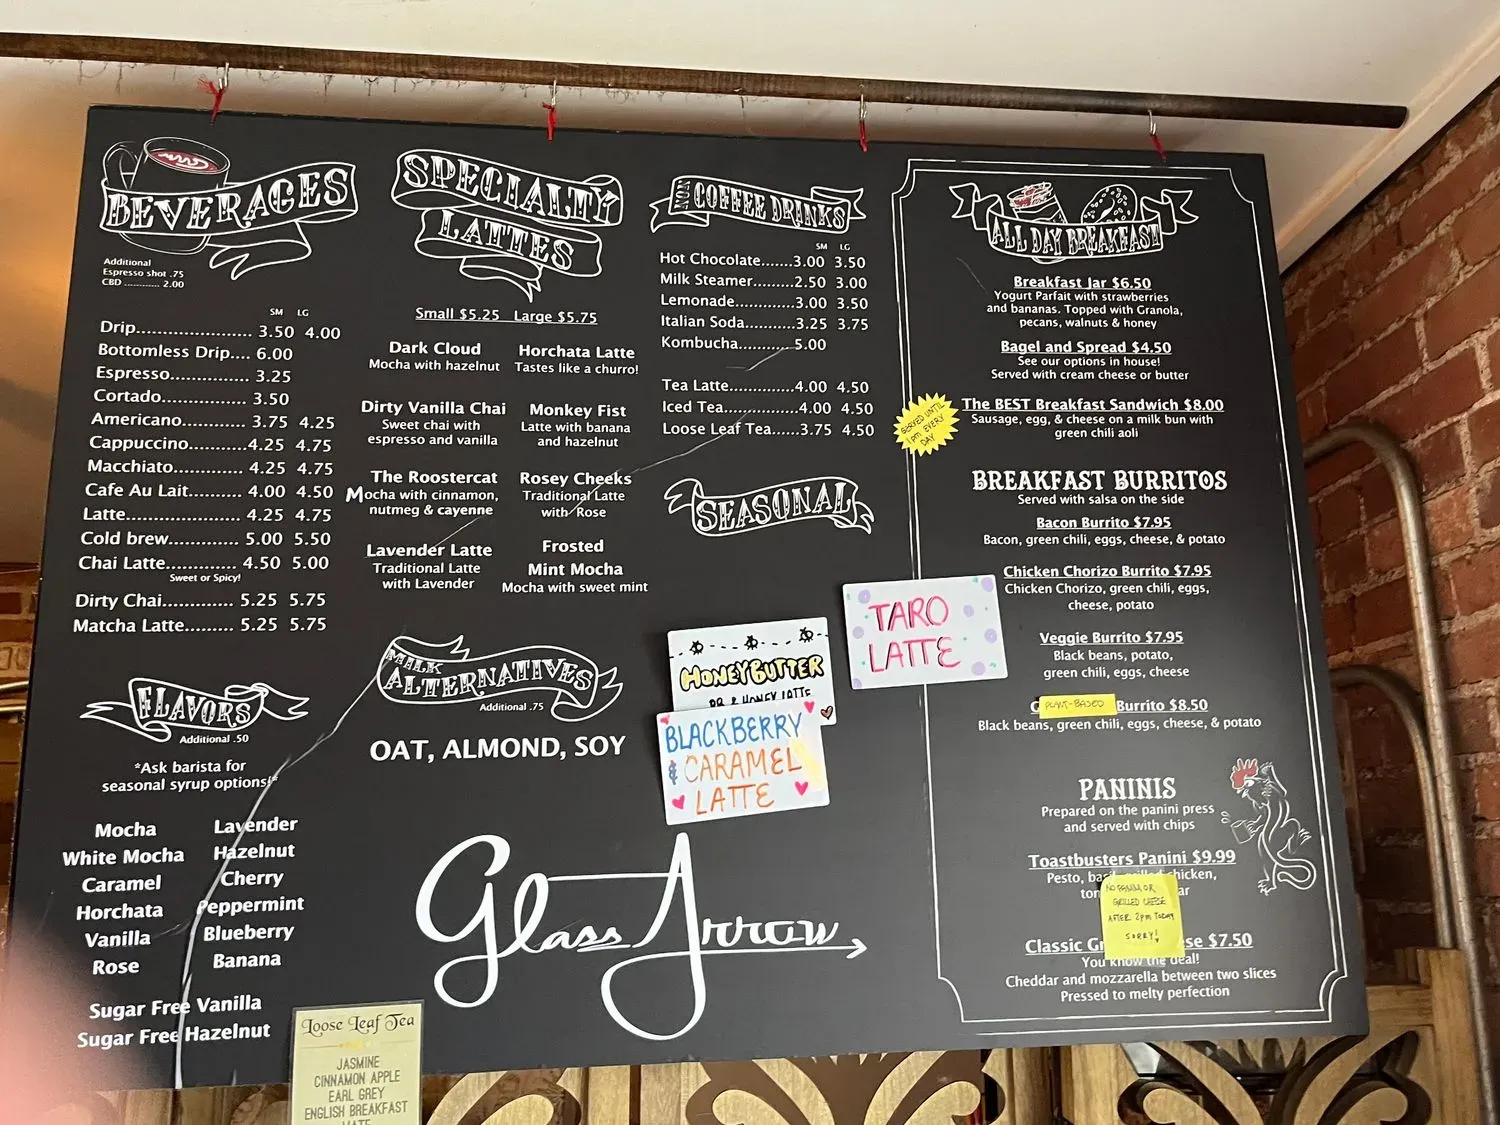 BEVERAGES
Additional
Espresso shot .75
CBD ............ 2.00
SM LG
Drip...................... 3.50 4.00
Bottomless Drip.... 6.00
Espresso............... 3.25
Cortado................ 3.50
Americano............ 3.75 4.25
Cappuccino...........4.25 4.75
Macchiato............. 4.25 4.75
Cafe Au Lait.......... 4.00 4.50
Latte...................... 4.25 4.75
Cold brew.............. 5.00 5.50
Chai Latte.............. 4.50 5.00
Sweet or Spicy!
Dirty Chai.............. 5.25 5.75
Matcha Latte......... 5.25 5.75
FLAVORS
Additional .50
*Ask barista for
seasonal syrup options!*
Mocha Lavender
White Mocha Hazelnut
Caramel Cherry
Horchata Peppermint
Vanilla Blueberry
Rose Banana
Sugar Free Vanilla
Sugar Free Hazelnut
SPECIALTY
LATTES
Small $5.25 Large $5.75
Dark Cloud
Mocha with hazelnut
Horchata Latte
Tastes like a churro!
Dirty Vanilla Chai
Sweet chai with
espresso and vanilla
Monkey Fist
Latte with banana
and hazelnut
The Roostercat
Mocha with cinnamon,
nutmeg & cayenne
Rosey Cheeks
Traditional Latte
with Rose
Lavender Latte
Traditional Latte
with Lavender
Frosted
Mint Mocha
Mocha with sweet mint
MILK
ALTERNATIVES
Additional .75
OAT, ALMOND, SOY
NON COFFEE DRINKS
SM LG
Hot Chocolate.......3.00 3.50
Milk Steamer.........2.50 3.00
Lemonade.............3.00 3.50
Italian Soda...........3.25 3.75
Kombucha............ 5.00
Tea Latte..............4.00 4.50
Iced Tea...............4.00 4.50
Loose Leaf Tea......3.75 4.50
SEASONAL
TARO
LATTE
HONEYBUTTER
PB & HONEY LATTE
BLACKBERRY
& CARAMEL
LATTE
Glass Arrow
Loose Leaf Tea
JASMINE
CINNAMON APPLE
EARL GREY
ENGLISH BREAKFAST
MATE
ALL DAY BREAKFAST
Breakfast Jar $6.50
Yogurt Parfait with strawberries
and bananas. Topped with Granola,
pecans, walnuts & honey
Bagel and Spread $4.50
See our options in house!
Served with cream cheese or butter
SERVED UNTIL
1pm EVERY
DAY
The BEST Breakfast Sandwich $8.00
Sausage, egg, & cheese on a milk bun with
green chili aoli
BREAKFAST BURRITOS
Served with salsa on the side
Bacon Burrito $7.95
Bacon, green chili, eggs, cheese, & potato
Chicken Chorizo Burrito $7.95
Chicken Chorizo, green chili, eggs,
cheese, potato
Veggie Burrito $7.95
Black beans, potato,
green chili, eggs, cheese
PLANT-BASED Burrito $8.50
Black beans, green chili, eggs, cheese, & potato
PANINIS
Prepared on the panini press
and served with chips
Toastbusters Panini $9.99
Pesto, chicken,
NO PANINI OR
GRILLED CHEESE
AFTER 2pm TODAY
SORRY!
Classic $7.50
You know the deal!
Cheddar and mozzarella between two slices
Pressed to melty perfection